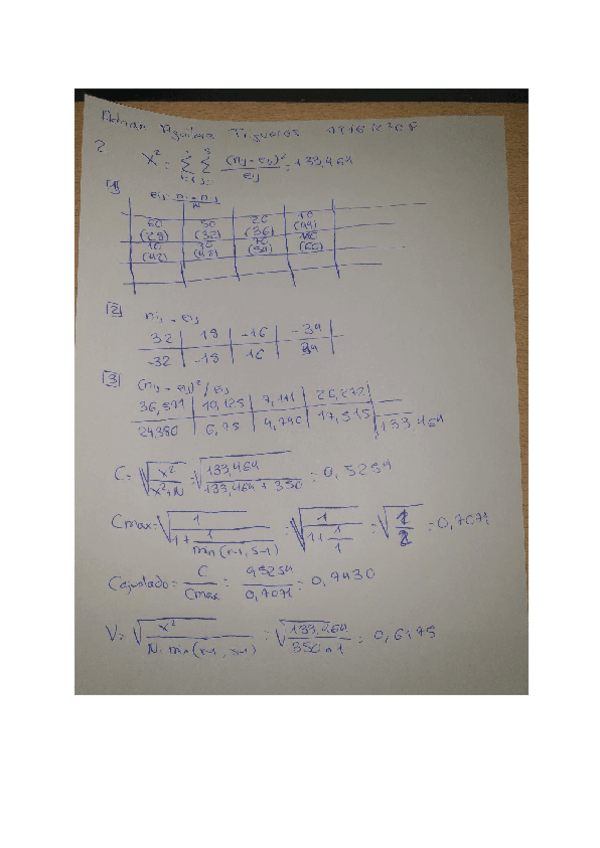 Adrian Aguilera
2
X² = Σ Σ (nij - eij)² / eij = 133,464
[1] eij = ni. n.j / N
60 | 50 | 20 | 10
(28) | (32) | (36) | (44)
10 | 30 | 70 | 100
(42) | (48) | (54) | (66)
[2] nij - eij
32 | 18 | -16 | -34
-32 | -18 | 16 | 34
[3] (nij - eij)² / eij
36,571 | 10,125 | 7,111 | 26,272
24,380 | 6,75 | 4,740 | 17,515 | 133,464
C = √(X² / (X² + N)) = √(133,464 / (133,464 + 350)) = 0,5254
Cmax = √(1 / (1 + 1 / min(r-1, s-1))) = √(1 / (1 + 1/1)) = √(1/2) = 0,7071
Cajustado = C / Cmax = 0,5254 / 0,7071 = 0,7430
V = √(X² / (N · min(r-1, s-1))) = √(133,464 / (350 · 1)) = 0,6175